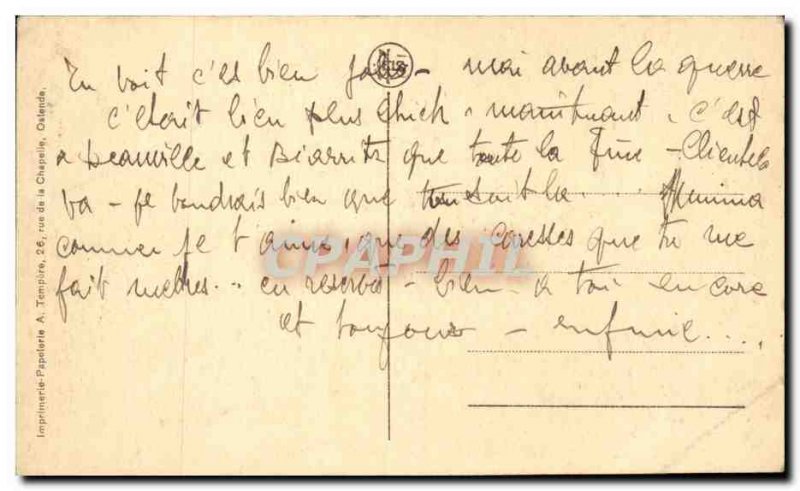 Tu voit c'es bien joli - mai avant la guerre
c'etait bien plus Chick - maintnant, c'est
a Deauville et Biarritz que toute la fine - Clientele
va - je voudrais bien que tu soit la ....
comme je t'aime, que des caresses que tu me
fait metres .. en reserve - bien a toi encore
et toujour - ....
Imprimerie-Papeterie A. Tempère, 26, rue de la Chapelle, Ostende.
CPAPHIL